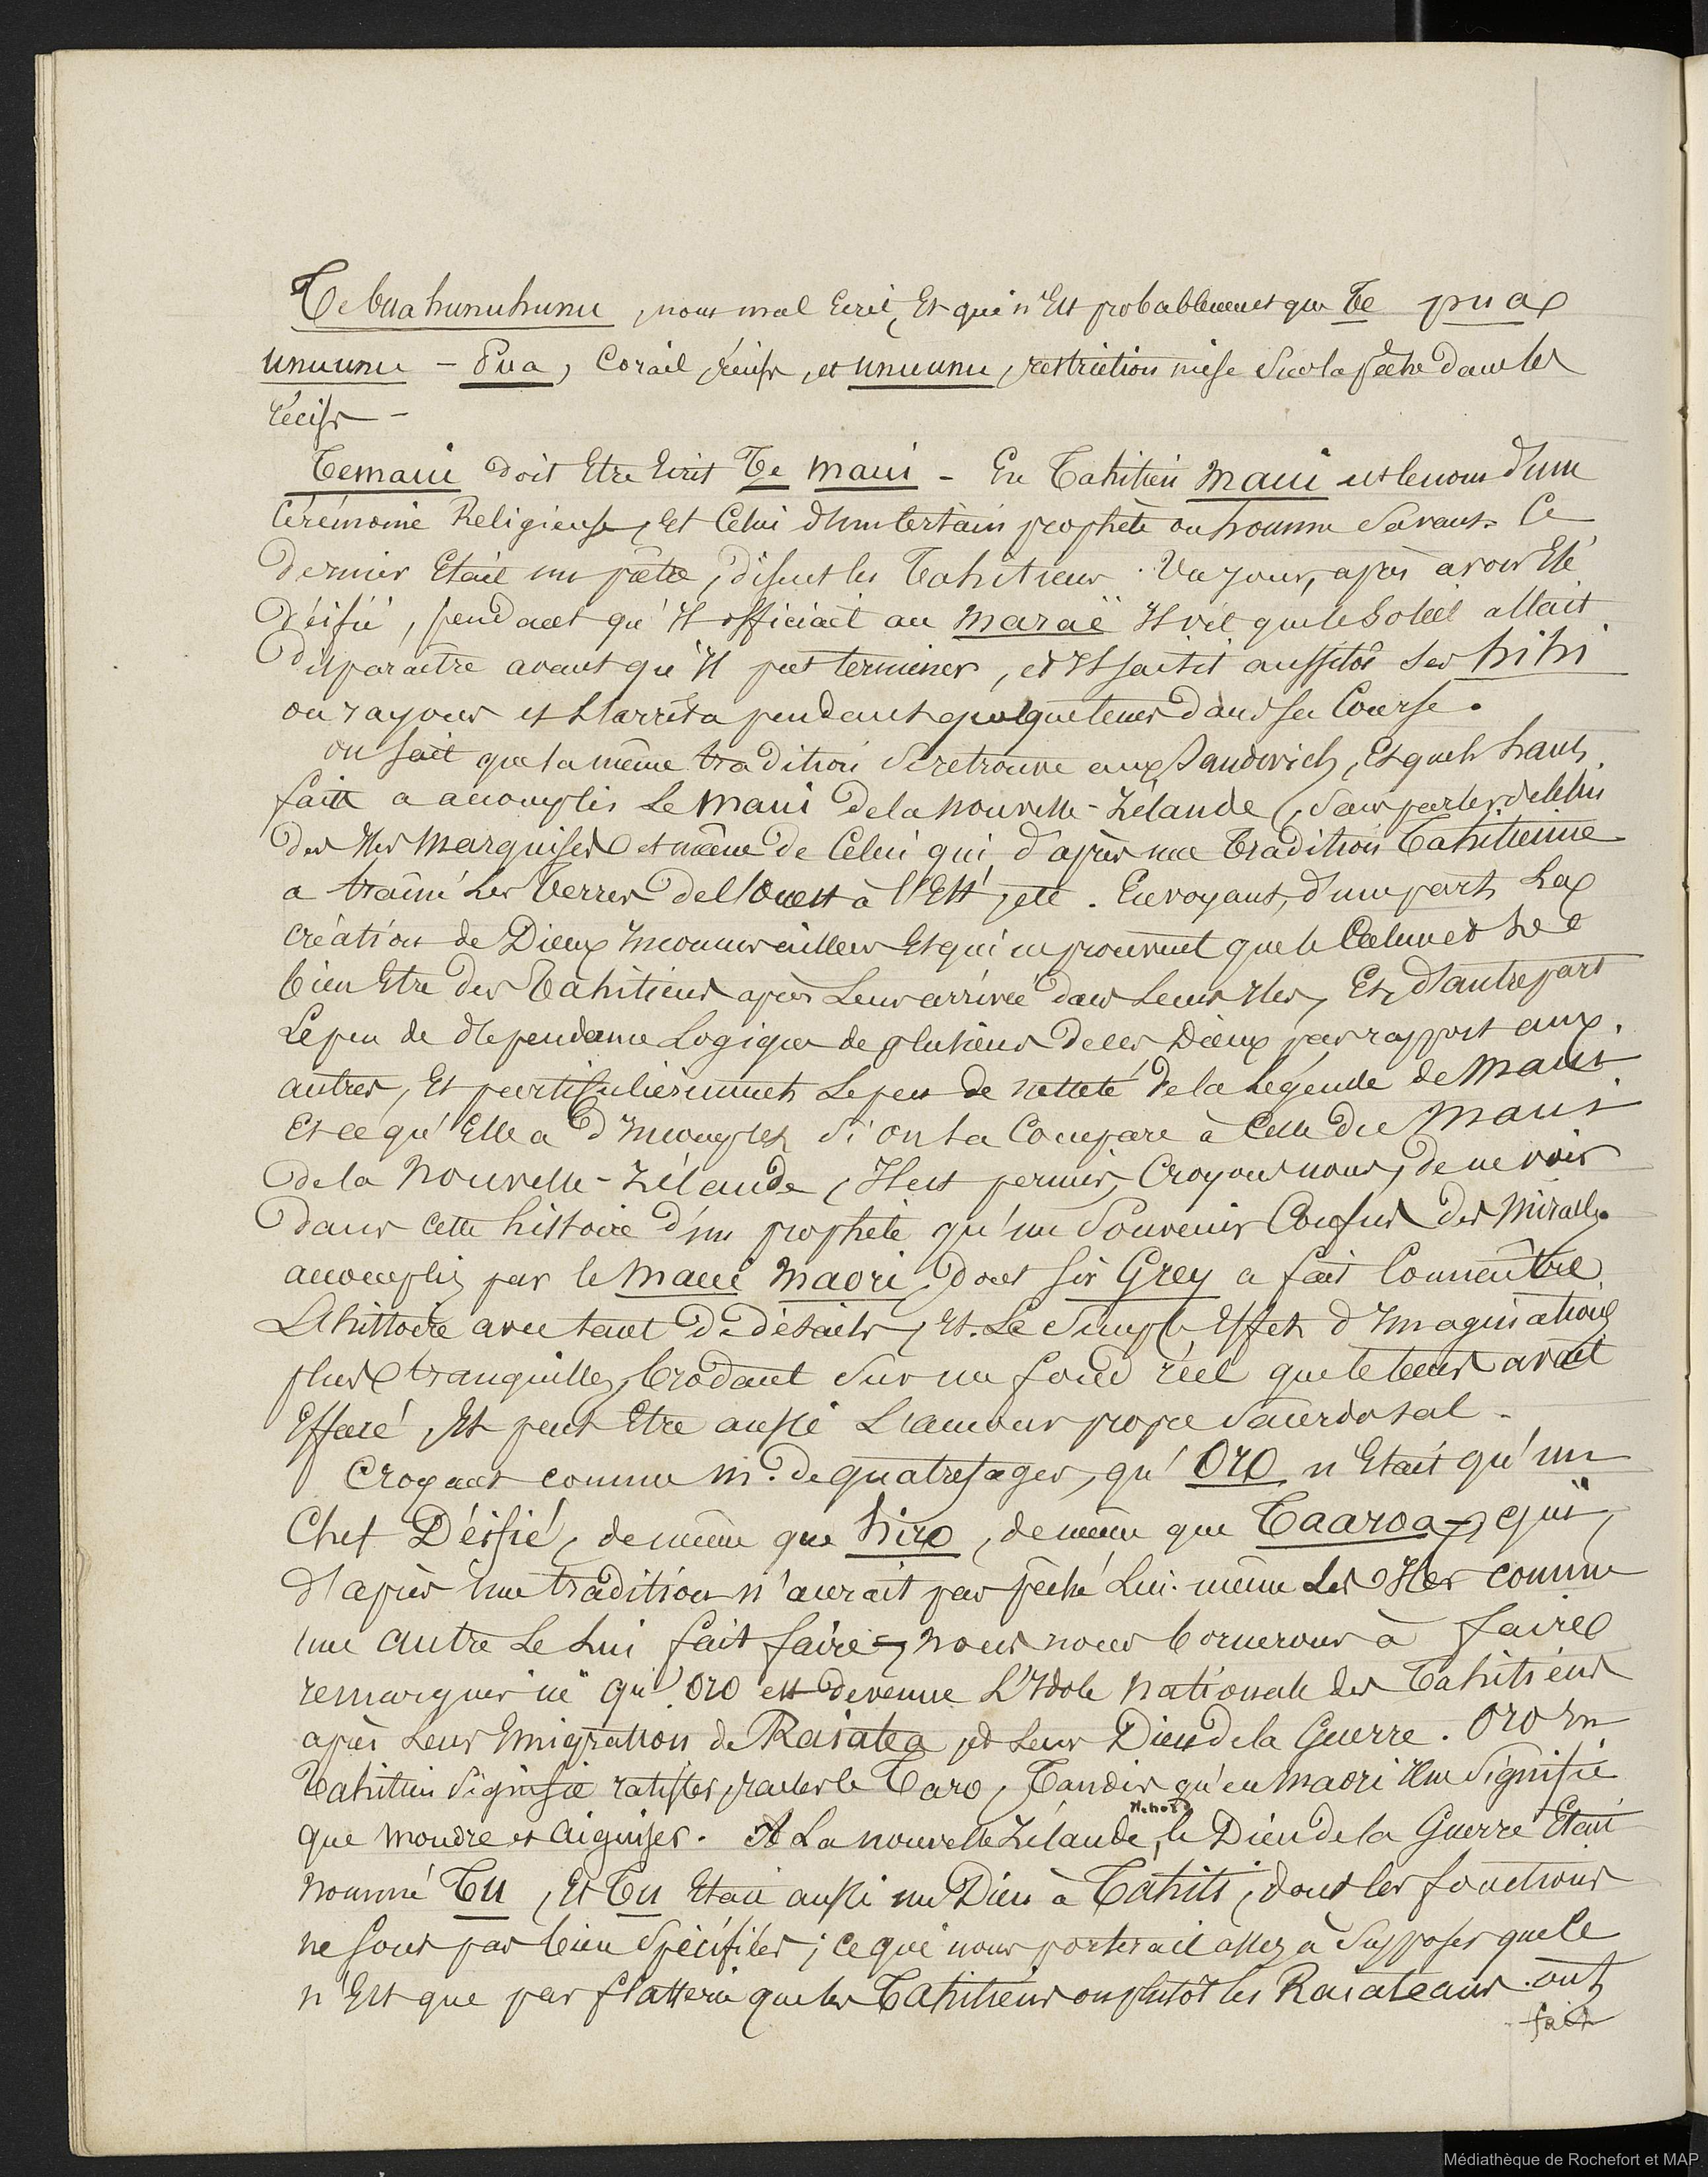 Tebuahunuhunu, nom mal Ecrit, Et qui n'Est probablement que Te pua
unuunu - Pua, Corail, récifs, et unuunu, restriction mise sur la pêche dans les
récifs -
Temaui doit Etre Ecrit Te Maui - En Tahitien Maui est le nom d'une
Cérémonie Religieuse, Et Celui d'un Certain prophète ou homme Savant. Ce
dernier Etait un prêtre, disent les Tahitiens. Un jour, après avoir Eté
déifié, pendant qu'Il officiait au Maraë Il vit que le Soleil allait
disparaître avant qu'Il put terminer, et Il saisit aussitôt Ses hihi
ou rayons et L'arrêta pendant quelque tems dans sa Course.
on sait que la même tradition Se retrouve aux Sandwich, Et quels hauts
faits a accomplis Le Maui de la Nouvelle-Zélande, Sans parler de celui
des Iles Marquises et même de Celui qui, d'après une tradition Tahitienne
a traîné Les Terres de L'Ouest à l'Est, etc. En voyant, d'une part, La
création de Dieux Et qui ne prouvent que le Calme et Le
bien Etre des Tahitiens après Leur arrivée dans Leurs Iles, Et, d'autre part
Le peu de dépendance Logique de plusieurs de ces Dieux par rapport aux
autres, Et particulièrement Le peu de netteté de la Légende de Maui
Et ce qu'Elle a d'Incomplet Si on La Compare à Celle du Maui
de la Nouvelle-Zélande, Il est permis, Croyons nous, de ne voir
dans Cette histoire d'un prophète qu'un Souvenir Confus des Miracles
accomplis par le Maui Maori, dont Sir Grey a fait Connaître
L'histoire avec tant de détails, Et Le Simple Effet d'Imaginations
plus tranquilles, brodant Sur un fond réel que le tems avait
Effacé, Et peut Etre aussi L'amour propre Sacerdotal.
Croyant comme M. de quatrefages, qu'Oro n'Etait qu'un
Chef Déifié, de même que hiro, de même que Taaroa, qui,
d'après Une tradition n'aurait pas pêché Lui-même Les Iles comme
Une autre Le Lui fait faire, nous nous bornerons à faire
remarquer ici qu'Oro est devenue L'Idole Nationale des Tahitiens
après Leur Emigration de Raiatea, et Leur Dieu de la Guerre. Oro En
Tahitien Signifie ratisser, racler le Taro, Tandis qu'en Maori Il ne Signifie
que moudre et Aiguiser. A La nouvelle Zélande, le Dieu de la Guerre Etait
Nommé Tu, Et Tu Etait aussi un Dieu à Tahiti, dont les fonctions
ne Sont pas bien Spécifiées; ce qui nous porterait assez à Supposer que Ce
n'Est que par flatterie que les Tahitiens ou plutôt les Raiateans ont
fait
Médiathèque de Rochefort et MAP